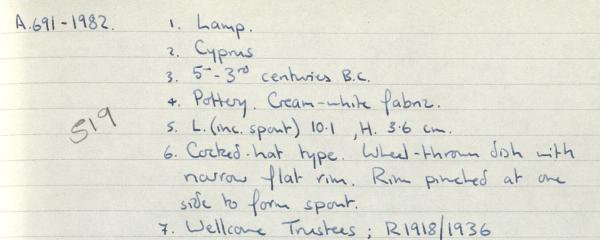 A.691-1982. 1. Lamp.
2. Cyprus
3. 5th-3rd centuries B.C.
4. Pottery. Cream-white fabric.
519
5. L. (inc. spout) 10.1, H. 3.6 cm.
6. Cocked-hat type. Wheel-thrown dish with
narrow flat rim. Rim pinched at one
side to form spout.
7. Wellcome Trustees; R1918/1936